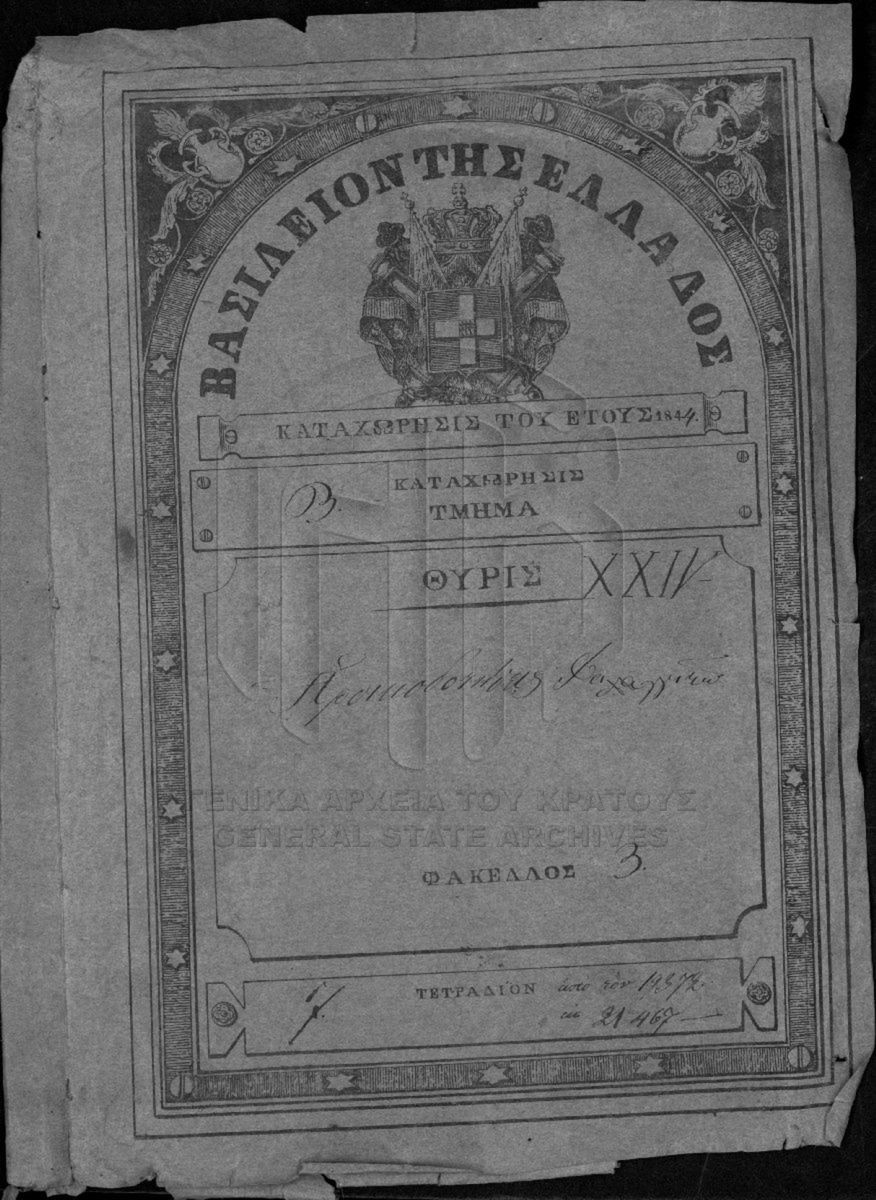 ΒΑΣΙΛΕΙΟΝ ΤΗΣ ΕΛΛΑΔΟΣ
ΚΑΤΑΧΩΡΗΣΙΣ ΤΟΥ ΕΤΟΥΣ 1844.
ΚΑΤΑΧΩΡΗΣΙΣ
Β. ΤΜΗΜΑ
ΘΥΡΙΣ XXIV
Προικοδοτήσεις Φαλαγγιτῶν
ΓΕΝΙΚΑ ΑΡΧΕΙΑ ΤΟΥ ΚΡΑΤΟΥΣ
GENERAL STATE ARCHIVES
ΦΑΚΕΛΛΟΣ 3.
ΤΕΤΡΑΔΙΟΝ ἀπὸ τὸν 19372.
21467